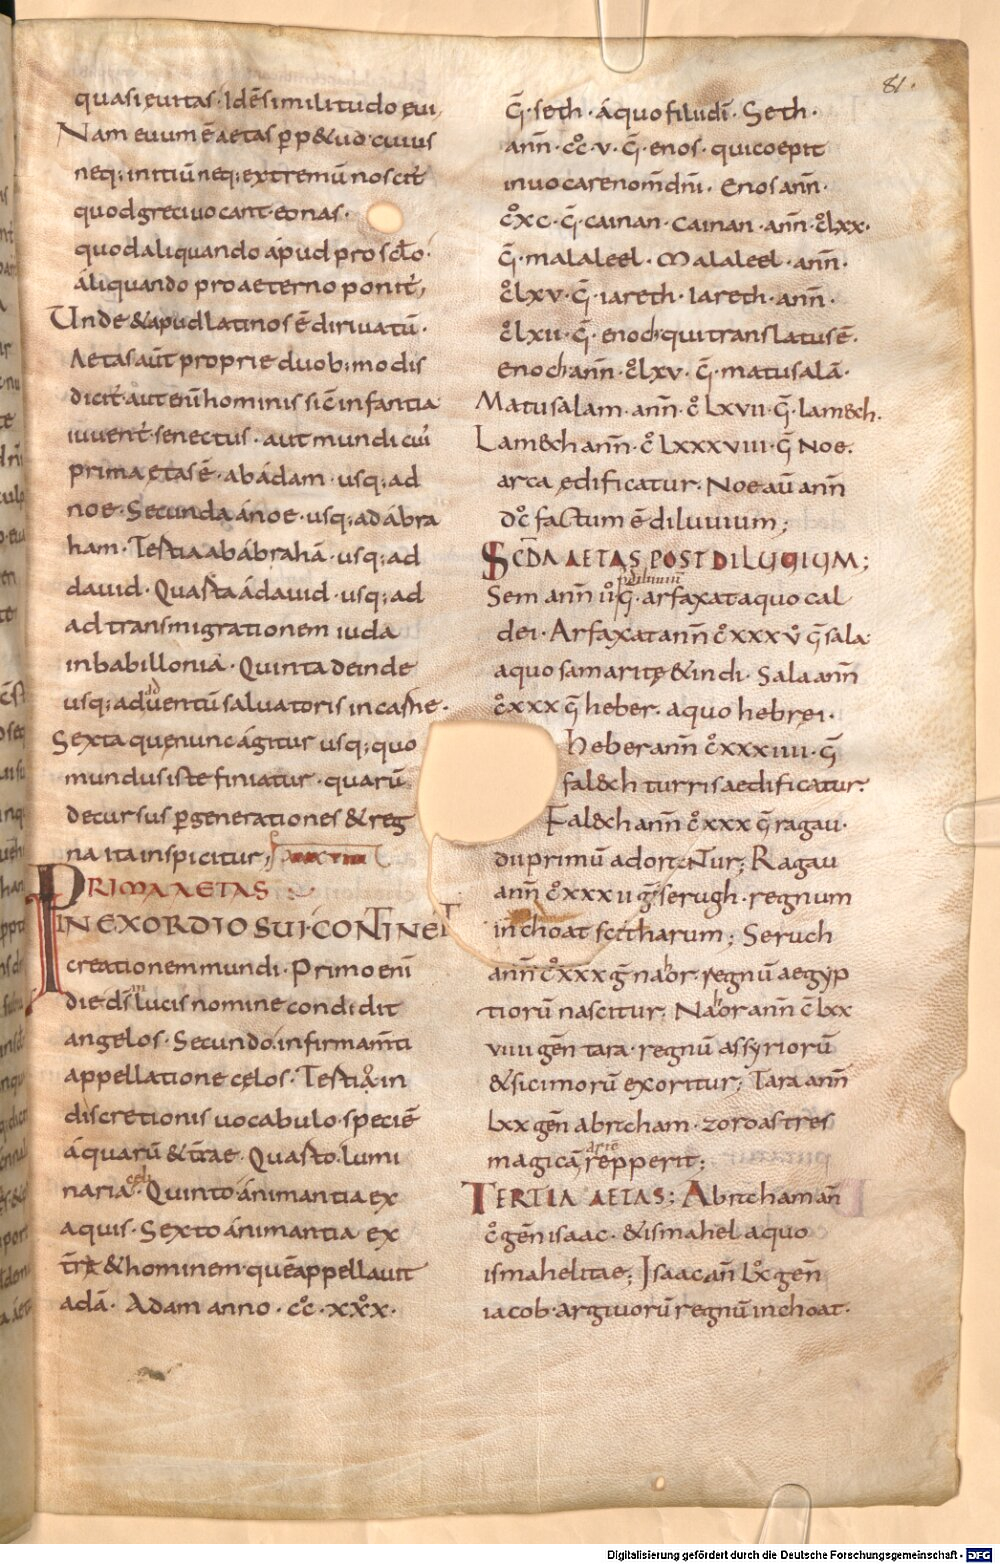 81.
quasi euitas. Idē similitudo ęui,
Nam euum ē aetas ꝑp&ua. cuius
neq; initiū neq; extremū noscit̄
quod greci uocant. eonas.
quod aliquando ápud pro sc̄lo.
áliquando pro aeterno ponit̄,
Unde &apud latinos ē diriuatū.
Aetas aūt proprie duob; modis
dicit̄. aut enī hominis sic̄ infantia
iuuent̄. senectus. aut mundi cuī
prima ętas ē. ab ádam. usq; ad
noe. Secunda á noe. usq; ad ábra
ham. Tertia ab ábrahā. usq; ad
dauid. Quarta á dauid. usq; ad
ad transmigrationem iuda
in babilloniā. Quinta deinde
usq; aduentū saluatoris in carne.
Sexta quę nunc ágitur usq; quo
mundus iste finiatur. quarū
decursus ꝑ generationes & reg
na ita inspicitur;
PRIMA AETAS
IN EXORDIO SUI. CONTINET
creationem mundi. Primo enī
die dī̄ lucis nomine condidit
angelos. Secundo. in firmam̄ti
appellatione cęlos. Tertia in
discretionis uocabulo. speciē
áquarū & t̄rae. Quarto. lumi
naria cęli. Quinto ánimantia ex
aquis. Sexto ánimantia ex
t̄ra & hominem. quē appellauit
adā. Adam anno. cc. xxx.
ḡ. seth. á quo filii dī. Seth.
ann̄. cc. v. ḡ. enos. qui coepit
inuocare nom̄ dn̄i. Enos ann̄.
cxc. ḡ. cainan. cainan. ann̄. clxx.
ḡ. malaleel. Malaleel. ann̄.
clxv. ḡ. iareth. Iareth. ann̄.
clxii. ḡ. enoch qui translatus ē.
enoch ann̄. clxv. ḡ. matusalā.
Matusalam. ann̄. c lxvii. ḡ. lam&ch.
Lam&ch ann̄. c lxxxviii. ḡ Noe.
arca ędificatur. Noe aū ann̄
dc factum ē diluuium;
SC̄DA AETAS POST DILUUIUM;
Sem ann̄ ii. ḡ. arfaxat a quo cal
dei. Arfaxat ann̄ cxxxv ḡ sala
a quo samaritę & indi. Sala ann̄
cxxx ḡ heber. a quo hebręi.
heber ann̄ cxxxiiii. ḡ
fal&ch turris aedificatur.
Fal&ch ann̄ cxxx ḡ ragau.
dii primū adorantur; Ragau
ann̄ cxxxii ḡ serugh. regnum
inchoat scitharum; Seruch
ann̄ cxxx ḡ nabor. regnū aegyp
tiorū nascitur; Nahor ann̄ c lxx
viiii gen̄ tara. regnū assyriorū
& sicimorū exoritur; Tara ann̄
lxx gen̄ abraham. zoroastres
magicā artē repperit;
TERTIA AETAS: Abraham an̄
c gen̄ isaac. & ismahel a quo
ismahelitae; Isaac an̄ lx gen̄
iacob. argiuorū regnū inchoat.
Digitalisierung gefördert durch die Deutsche Forschungsgemeinschaft - DFG